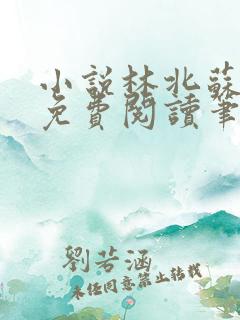 小說林北蘇
免費閱讀筆
劉若涵
未經同意禁止轉載